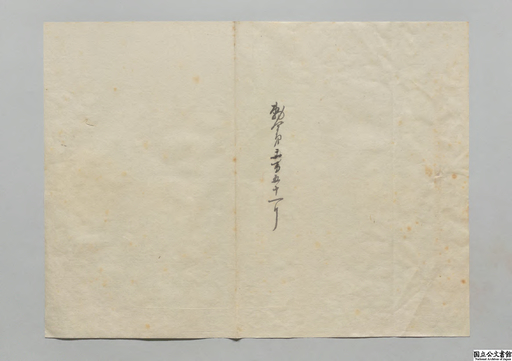 勅令第五百五十一号
国立公文書館
National Archives of Japan